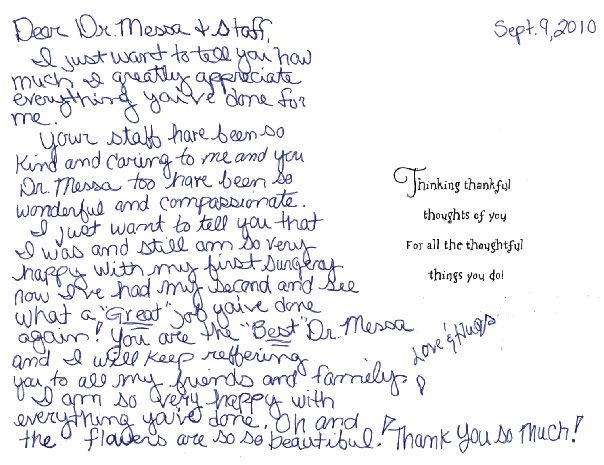 Sept. 9, 2010
Dear Dr. Messa & Staff,
I just want to tell you how
much I greatly appreciate
everything you've done for
me.
Your staff have been so
kind and caring to me and you
Dr. Messa too have been so
wonderful and compassionate.
I just want to tell you that
I was and still am so very
happy with my first surgery
now I've had my second and see
what a "Great" job you've done
again! You are the "Best" Dr. Messa
and I will keep reffering
you to all my friends and family!
I am so very happy with
everything you've done. Oh and
the flowers are so so beautiful! Thank You so Much!
Love & Hugs
Thinking thankful
thoughts of you
For all the thoughtful
things you do!